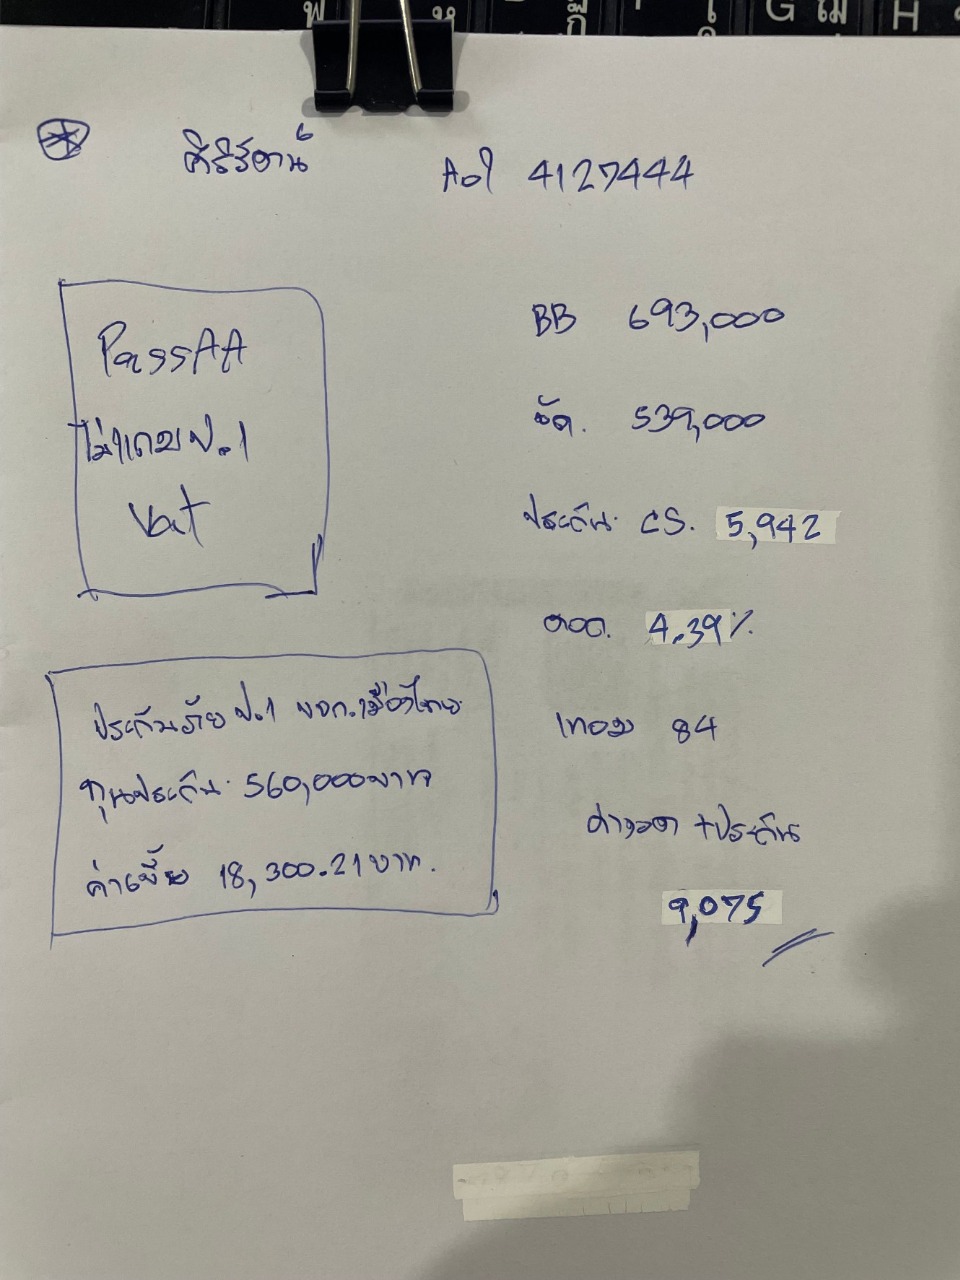 ศิริรัตน์
A๐1 4127444
PassAA
ไม่แถม ป.1
Vat
BB 693,000
จัด. 539,000
ประกัน CS. 5,942
ดอก. 4.39%
เทอม 84
ค่างวด + ประกัน
9,075
ประกันภัย ป.1 บจก.เมืองไทย
ทุนประกัน 560,000 บาท
ค่าเบี้ย 18,300.21 บาท.